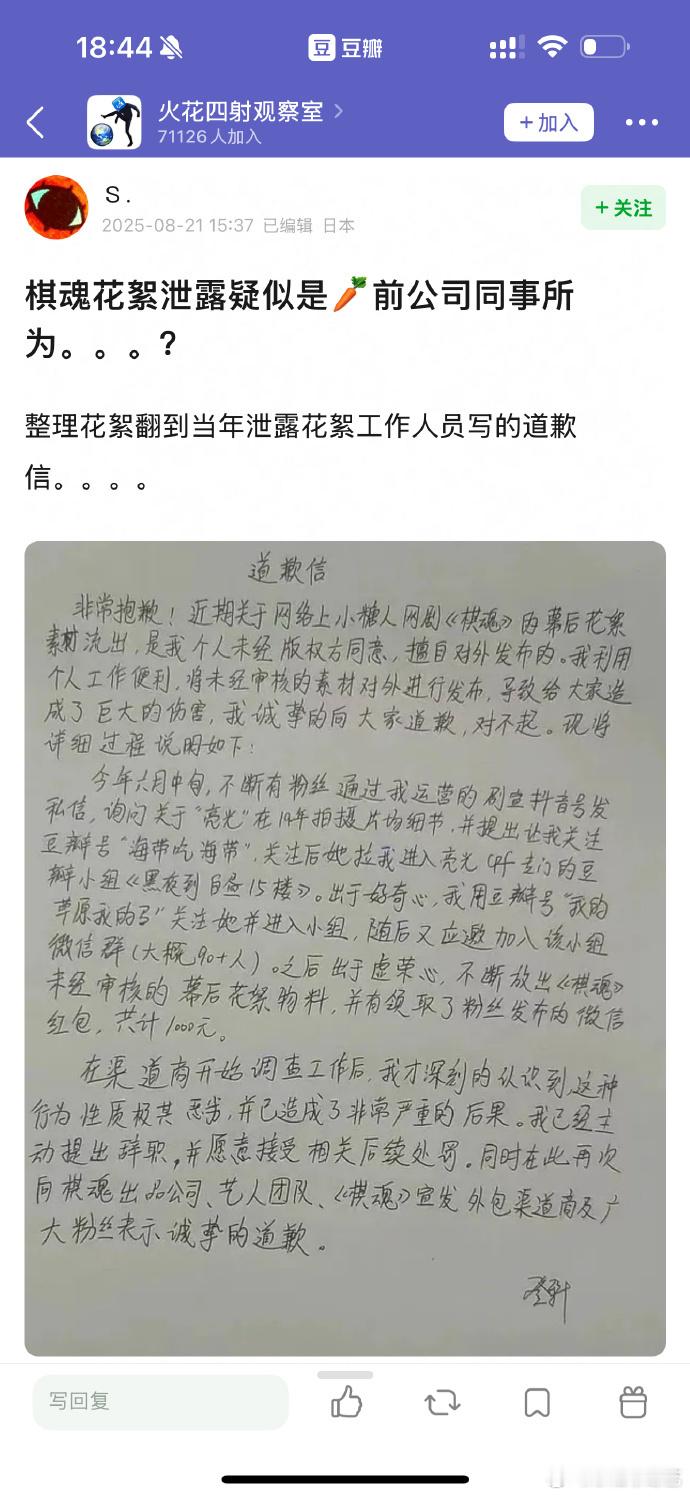 18:44
豆 豆瓣
火花四射观察室
71126人加入
+加入
S.
2025-08-21 15:37 已编辑 日本
+关注
棋魂花絮泄露疑似是🥕前公司同事所
为。。。?
整理花絮翻到当年泄露花絮工作人员写的道歉
信。。。。
道歉信
非常抱歉!近期关于网络上小糖人网剧《棋魂》的幕后花絮
素材流出,是我个人未经版权方同意,擅自对外发布的。我利用
个人工作便利,将未经审核的素材对外进行发布,导致给大家造
成了巨大的伤害,我诚挚的向大家道歉,对不起。现将
详细过程说明如下:
今年六月中旬,不断有粉丝通过我运营的剧宣抖音号发
私信,询问关于“亮光”在19年拍摄片场细节,并提出让我关注
豆瓣号“海带吃海带”,关注后她拉我进入亮光cp粉专门的豆
瓣小组《黑夜到白昼15楼》。出于好奇心,我用豆瓣号“我的
草原我的弓”关注她并进入小组,随后又应邀加入该小组
微信群(大概90+人)。之后出于虚荣心,不断放出《棋魂》
未经审核的幕后花絮物料,并有领取了粉丝发布的微信
红包,共计1000元。
在渠道商开始调查工作后,我才深刻的认识到,这种
行为性质极其恶劣,并已造成了非常严重的后果。我已经主
动提出辞职,并愿意接受相关后续处罚。同时在此再次
向棋魂出品公司、艺人团队、《棋魂》宣发外包渠道商及广
大粉丝表示诚挚的道歉。
写回复